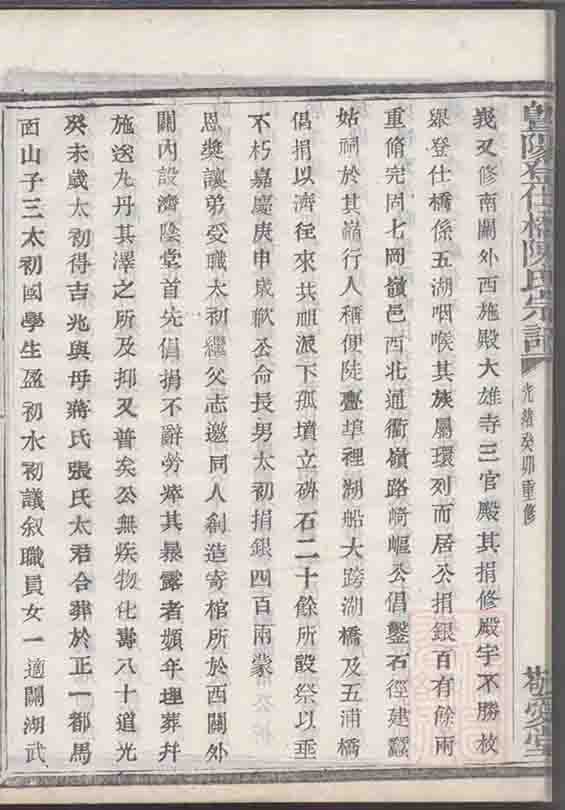 暨陽登仕橋陳氏宗譜
光緒癸卯重修
敬安堂
義又修南關外西施殿大雄寺三官殿其捐修殿宇不勝枚
舉登仕橋係五湖咽喉其族屬環列而居公捐銀百有餘兩
重脩完固七岡嶺邑西北通衢嶺路崎嶇公倡鑿石徑建蠶
姑祠於其嶺行人稱便陡亹埠裡湖船大跨湖橋及五浦橋
倡捐以濟徃來共祖派下孤墳立碑石二十餘所設祭以垂
不朽嘉慶庚申歲歉公命長男太初捐銀四百兩蒙
恩獎讓弟受職太初繼父志邀同人創造寄棺所於西關外
關內設濟陰堂首先倡捐不辭勞瘁其暴露者頻年埋葬并
施送九丹其澤之所及抑又普矣公無疾物化壽八十道光
癸未歲太初得吉兆與母蔣氏張氏太君合葬於正一都馬
面山子三太初國學生盈初水初議叙職員女一適闗湖武